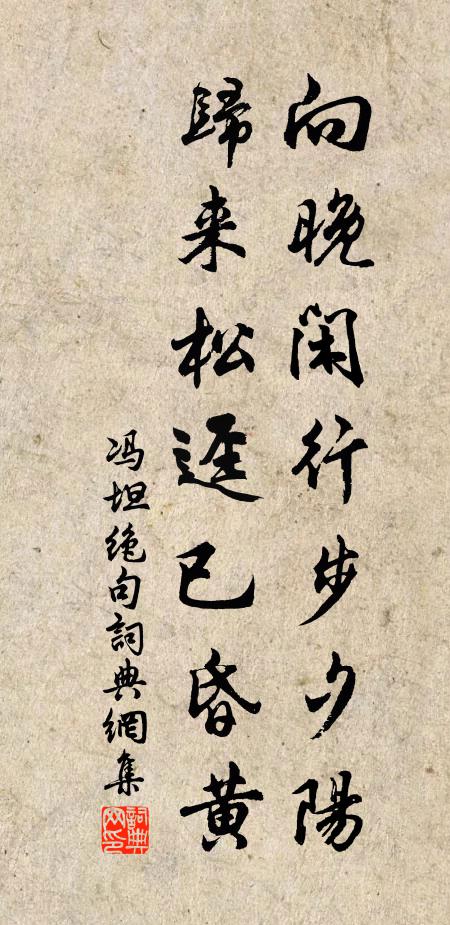 向晚閑行步夕陽
歸来松逕已昏黄
冯坦绝句詞典網集
詞典
网印